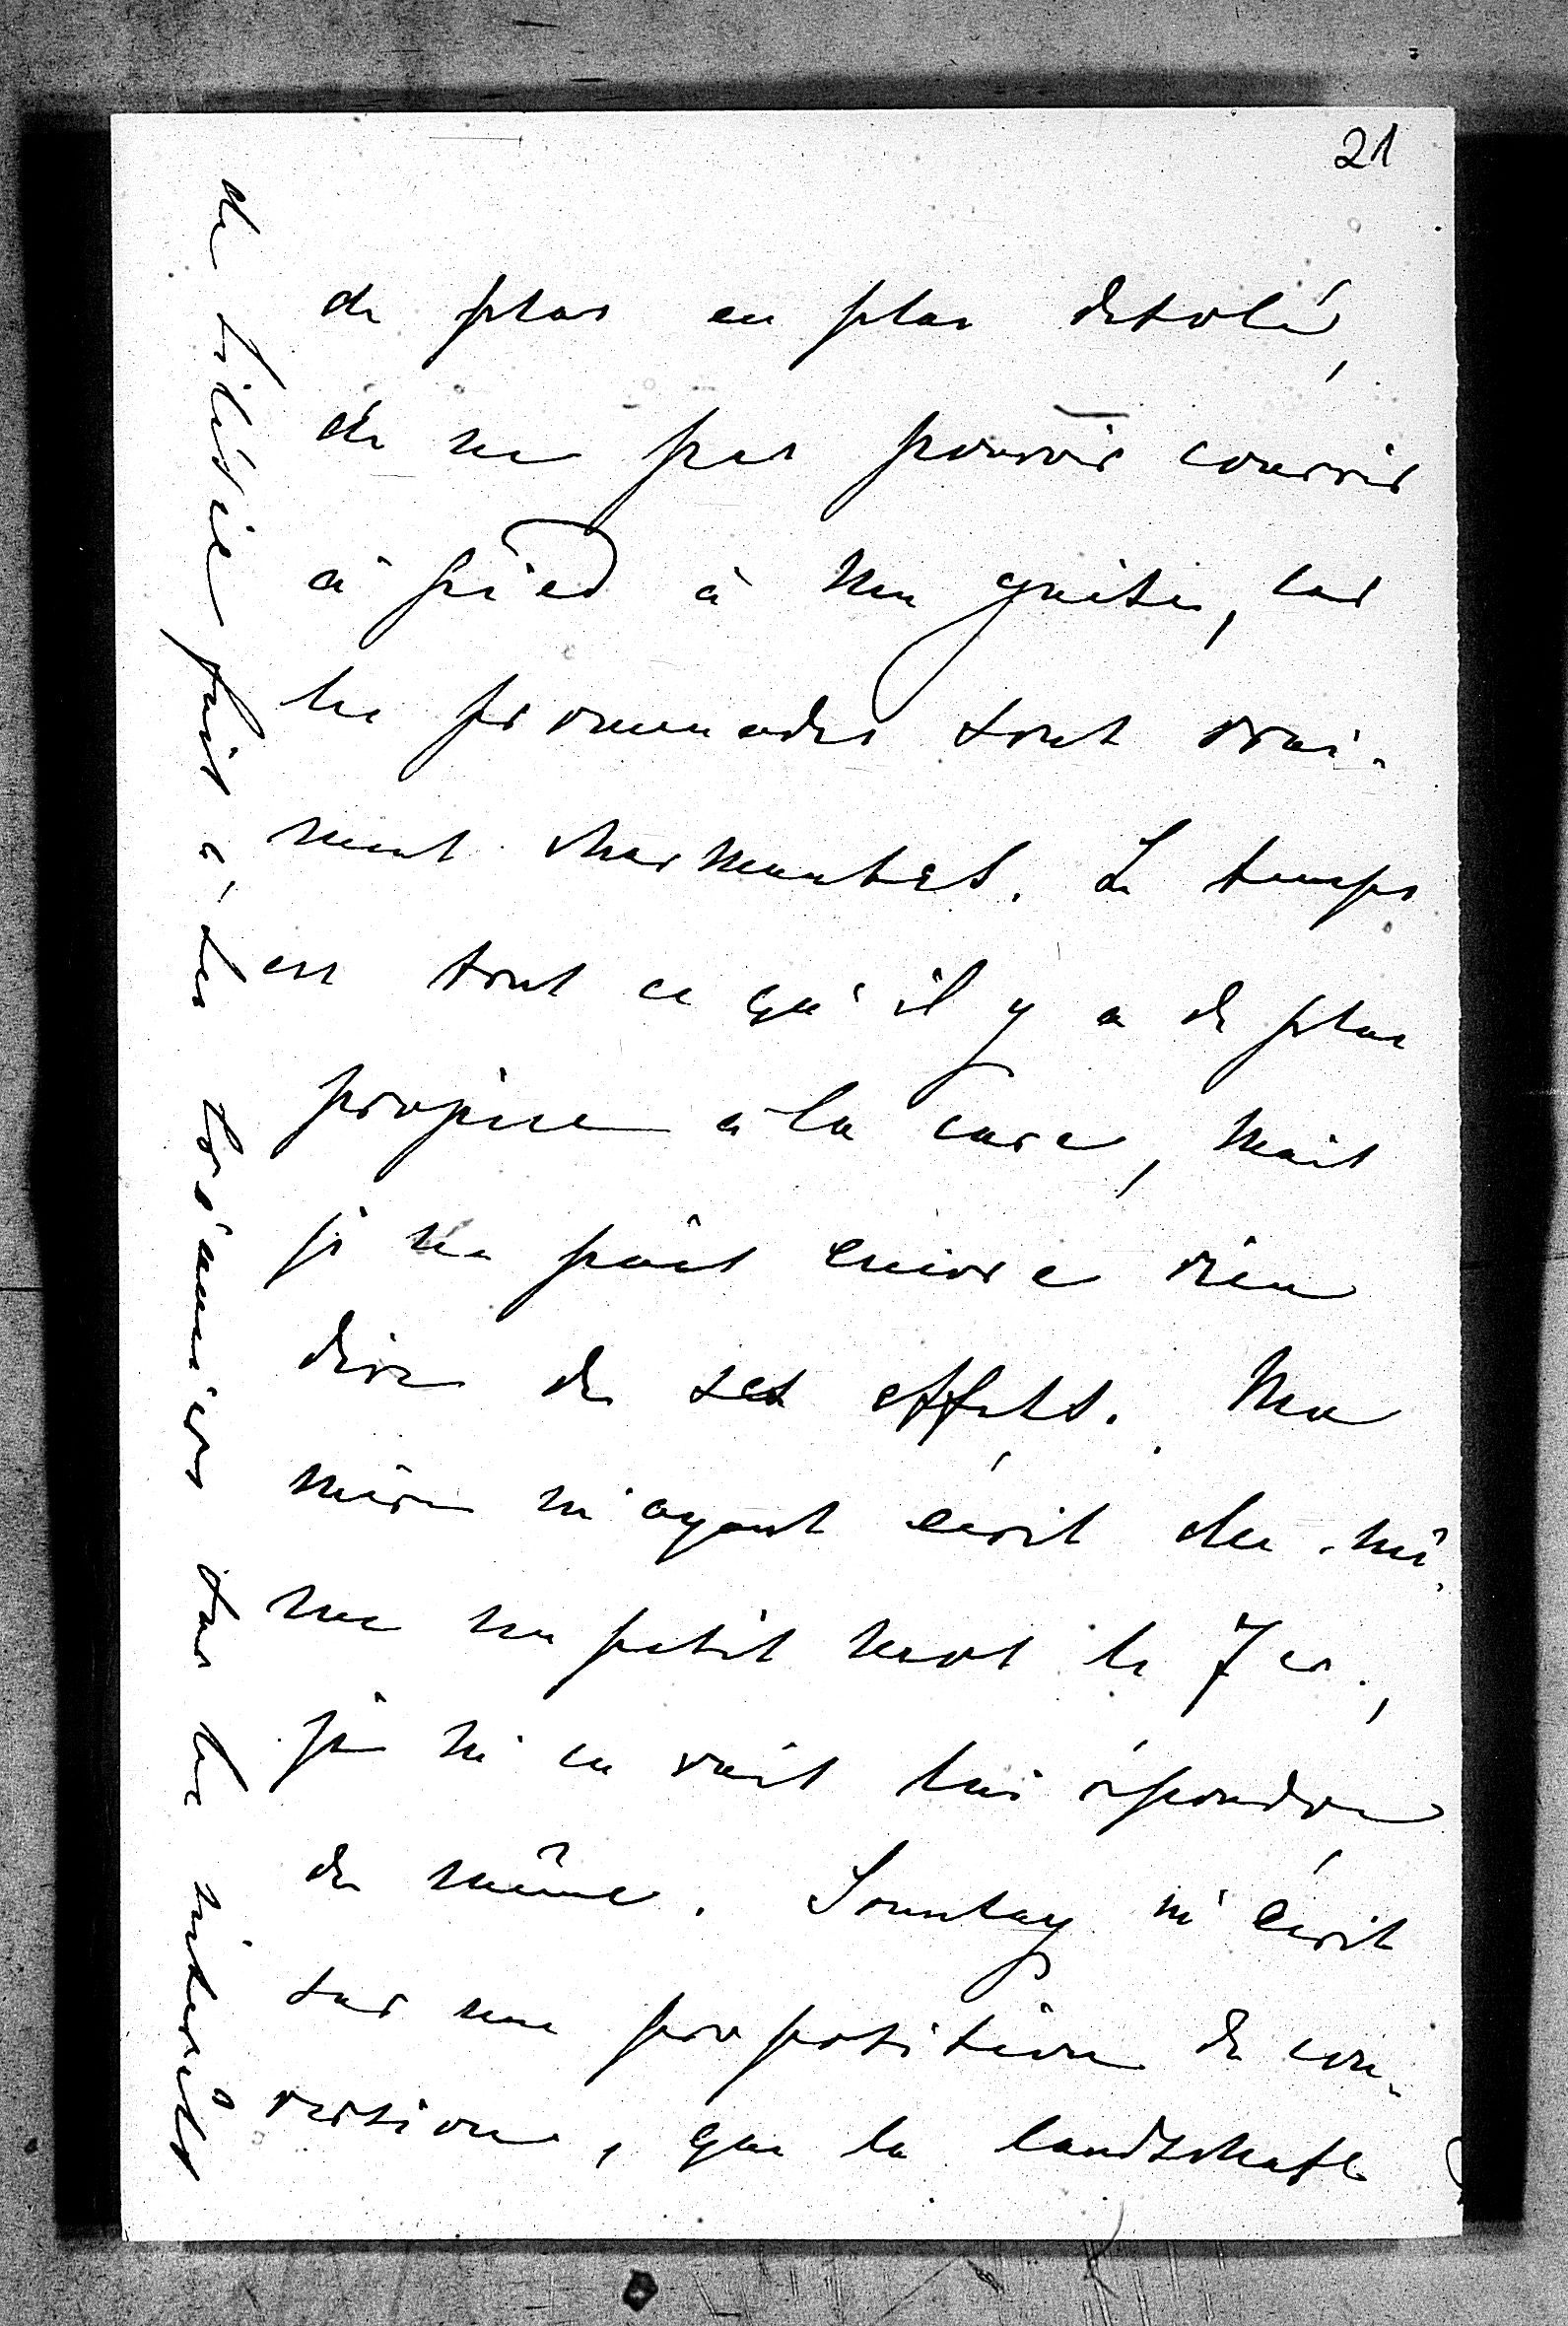 21
de plus en plus désolé,
de ne pas pouvoir courrir
à pied à ma guise, car
les promenades sont vrai-
ment charmantes. Le temps
est tout ce qu'il y a de plus
propice à la cure, mais
je ne puis encore rien
dire de ses effets. Ma
mère m'ayant écrit elle mê-
me un petit mot le 7 cr.,
je m'en vais lui répondre
de même. Sonntag m'écrit
sur une proposition de con-
version, que la landschaft
de Silésie fait à ses créanciers sur les intérêts